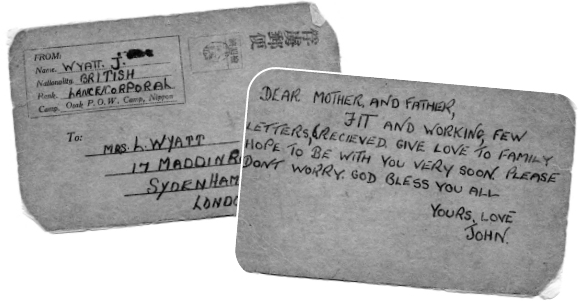 FROM:
Name. WYATT. J.
Nationality. BRITISH
Rank. LANCE/CORPORAL
Camp. Osak P.O.W. Camp, Nippon
To:
MRS. L. WYATT
17 MADDIN
SYDENHAM
LONDO
DEAR MOTHER, AND FATHER,
FIT AND WORKING, FEW
LETTERS, RECIEVED. GIVE LOVE TO FAMILY
HOPE TO BE WITH YOU VERY SOON. PLEASE
DONT WORRY. GOD BLESS YOU ALL
YOURS, LOVE
JOHN.